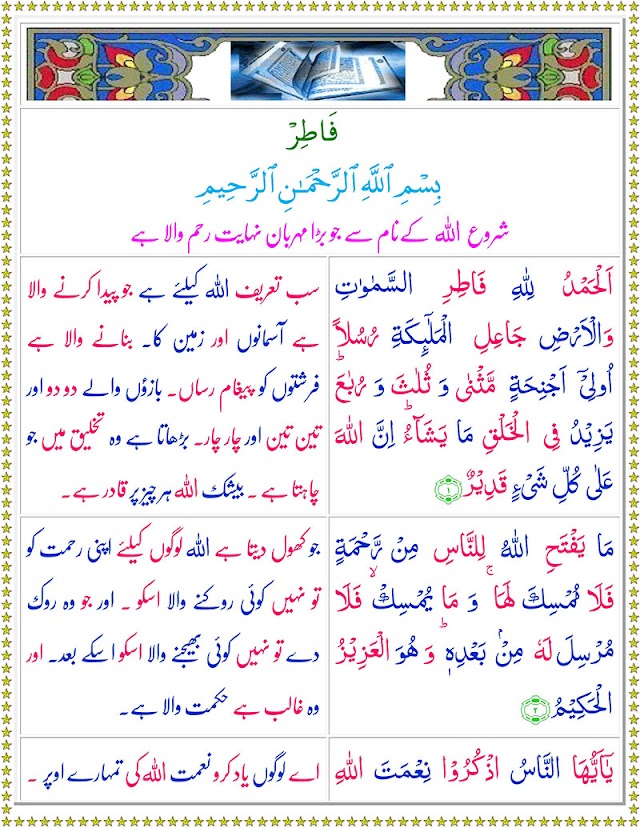 فَاطِرْ
بِسْمِ ٱللَّهِ ٱلرَّحْمَـٰنِ ٱلرَّحِيمِ
شروع اللہ کے نام سے جو بڑا مہربان نہایت رحم والا ہے
اَلْحَمْدُ لِلّٰهِ فَاطِرِ السَّمٰوٰتِ
وَالْاَرْضِ جَاعِلِ الْمَلٰٓئِكَةِ رُسُلًا
اُولِیْۤ اَجْنِحَةٍ مَّثْنٰى وَ ثُلٰثَ وَ رُبٰعَ ؕ
یَزِیْدُ فِی الْخَلْقِ مَا یَشَآءُ ؕ اِنَّ اللّٰهَ
عَلٰى كُلِّ شَیْءٍ قَدِیْرٌ ﴿۱﴾
سب تعریف اللہ کیلئے ہے جو پیدا کرنے والا
ہے آسمانوں اور زمین کا۔ بنانے والا ہے
فرشتوں کو پیغام رساں۔ بازؤں والے دو دو اور
تین تین اور چار چار۔ بڑھاتا ہے وہ تخلیق میں جو
چاہتا ہے ۔ بیشک اللہ ہر چیز پر قادر ہے۔
مَا یَفْتَحِ اللّٰهُ لِلنَّاسِ مِنْ رَّحْمَةٍ
فَلَا مُمْسِكَ لَهَا ۚ وَ مَا یُمْسِكْ ۙ فَلَا
مُرْسِلَ لَهٗ مِنْۢ بَعْدِهٖ ؕ وَ هُوَ الْعَزِیْزُ
الْحَكِیْمُ ﴿۲﴾
جو کھول دیتا ہے اللہ لوگوں کیلئے اپنی رحمت کو
تو نہیں کوئی روکنے والا اسکو ۔ اور جو وہ روک
دے تو نہیں کوئی بھیجنے والا اسکو اسکے بعد۔ اور
وہ غالب ہے حکمت والا ہے۔
یٰۤاَیُّهَا النَّاسُ اذْكُرُوْا نِعْمَتَ اللّٰهِ
اے لوگوں یاد کرو نعمت اللہ کی تمہارے اوپر ۔